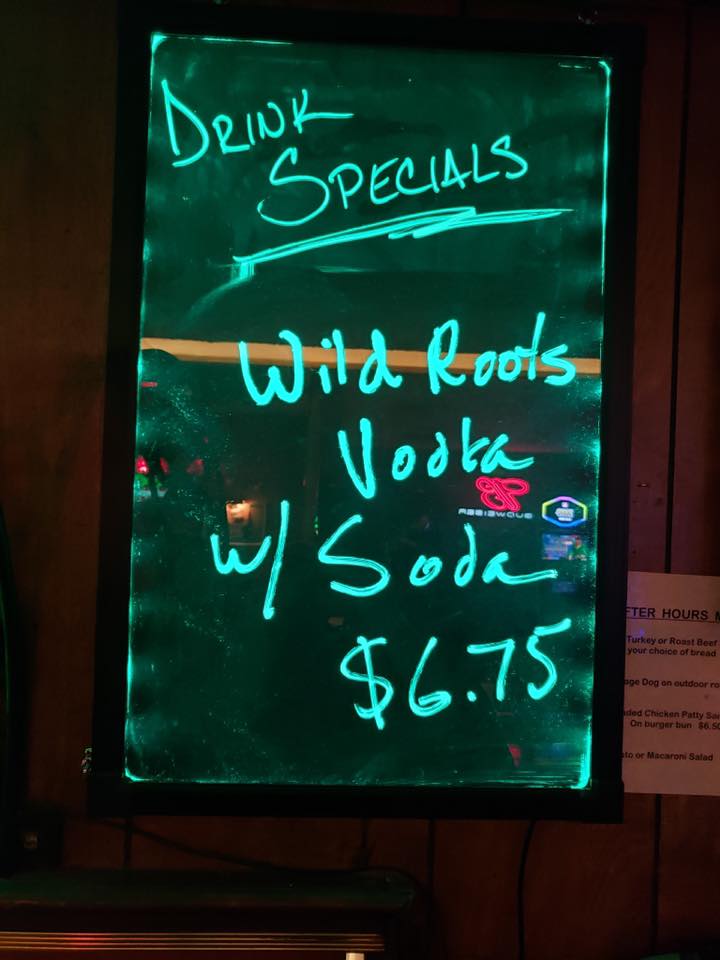 DRINK
SPECIALS
Wild Roots
Vodka
w/ Soda
$6.75
FTER HOURS
Turkey or Roast Beef
your choice of bread
Dog on outdoor
Chicken Patty
On burger bun $6.50
or Macaroni Salad